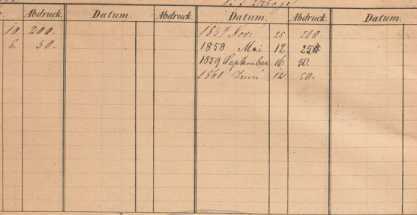 Abdruck. Datum. Abdruck. Datum. Abdruck. Datum.
10 200. Nov. 25 200
6. 50. 1859 Mai 12 250
1859 September 16 50.
1861 Juni 12 50.